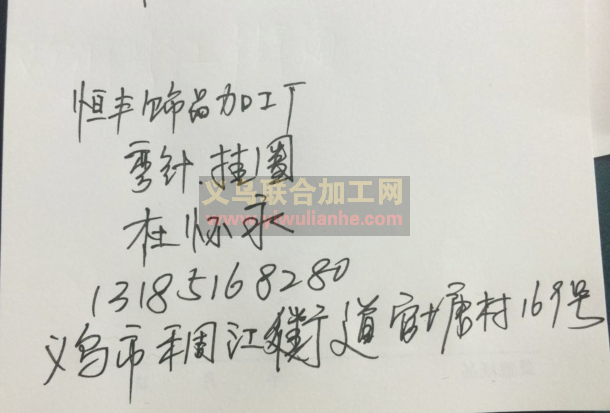 恒丰饰品加工厂
弯针.挂圈
杜怀永
13185168280
义乌市稠江街道官塘村169号
义乌联合加工网
www.yiwulianhe.com